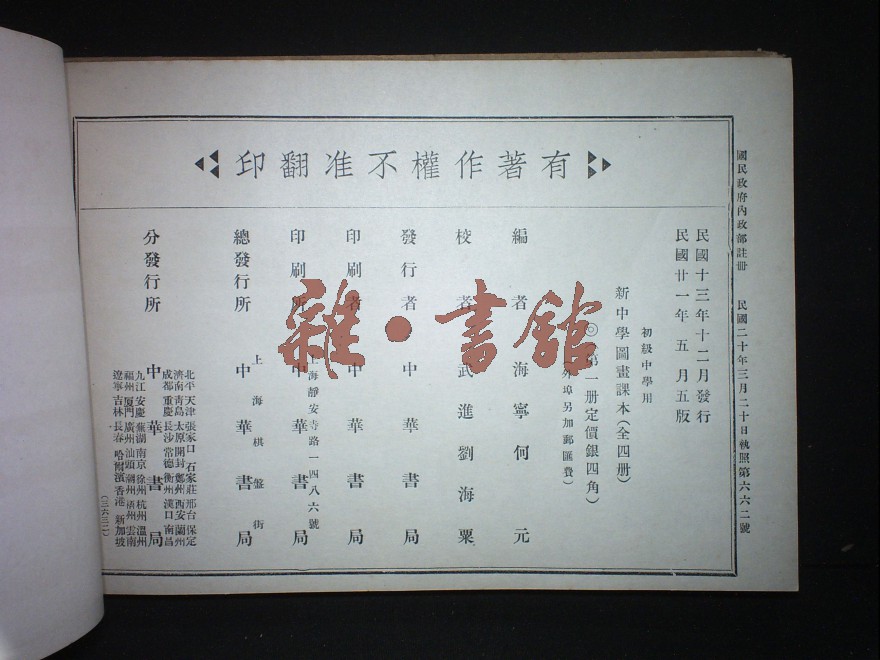 國民政府內政部註冊　民國二十年三月二十日執照第六六二號
有著作權不准翻印
民國十三年十二月發行
民國廿一年五月五版
初級中學用
新中學圖畫課本(全四册)
◎第一册定價銀四角)
外埠另加郵匯費)
編者　海寧何元
校者　武進劉海粟
發行者　中華書局
印刷者　中華書局
上海靜安寺路一四八六號
印刷所　中華書局
上海棋盤街
總發行所　中華書局
分發行所　中華書局
北平 天津 張家口 石家莊 邢台 保定
濟南 青島 太原 開封 鄭州 西安 蘭州
成都 重慶 長沙 常德 衡州 漢口 南昌
九江 安慶 蕪湖 南京 徐州 杭州 溫州
福州 廈門 廣州 汕頭 潮州 梧州 雲南
遼寧 吉林 長春 哈爾濱 香港 新加坡
(三六三二)
雜·書館